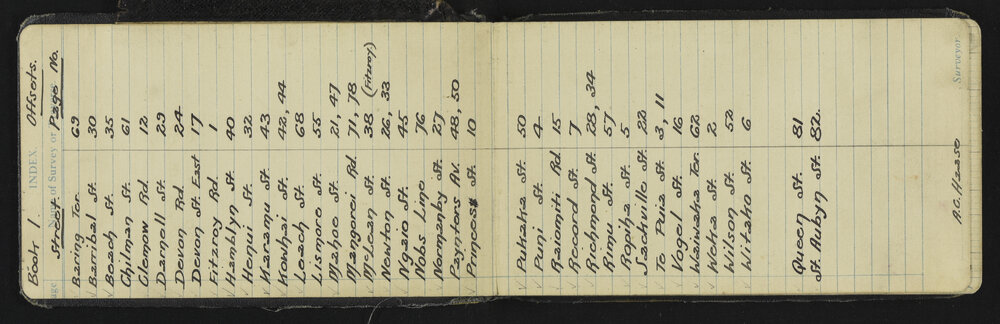 Book 1. INDEX Offsets.
Street. of Survey or Page No.
Baring Ter. 69
Barribal St. 30
Beach St. 35
Chilman St. 61
Clemow Rd. 12
Darnell St. 29
Devon Rd. 24
Devon St. East 17
Fitzroy Rd. 1
Hamblyn St. 40
Henui St. 32
Karamu St. 43
Kowhai St. 42, 44
Leach St. 68
Lismore St. 55
Mahoe St. 21, 47
Mangorei Rd. 71, 78
McLean St. 38 (Fitzroy)
Newton St. 26, 33
Ngaio St. 45
Nobs Line 76
Normanby St. 27
Payntors Av. 48, 50
Princess St. 10
Pukaka St. 50
Puni St. 4
Raiomiti Rd. 15
Record St. 7
Richmond St. 28, 34
Rimu St. 57
Ropiha St. 5
Sackville St. 22
Te Puia St. 3, 11
Vogel St. 16
Waiwaka Ter. 62
Weka St. 2
Wilson St. 52
Witako St. 6
Queen St. 81
St. Aubyn St. 82.
Surveyor
A.C.H 2250